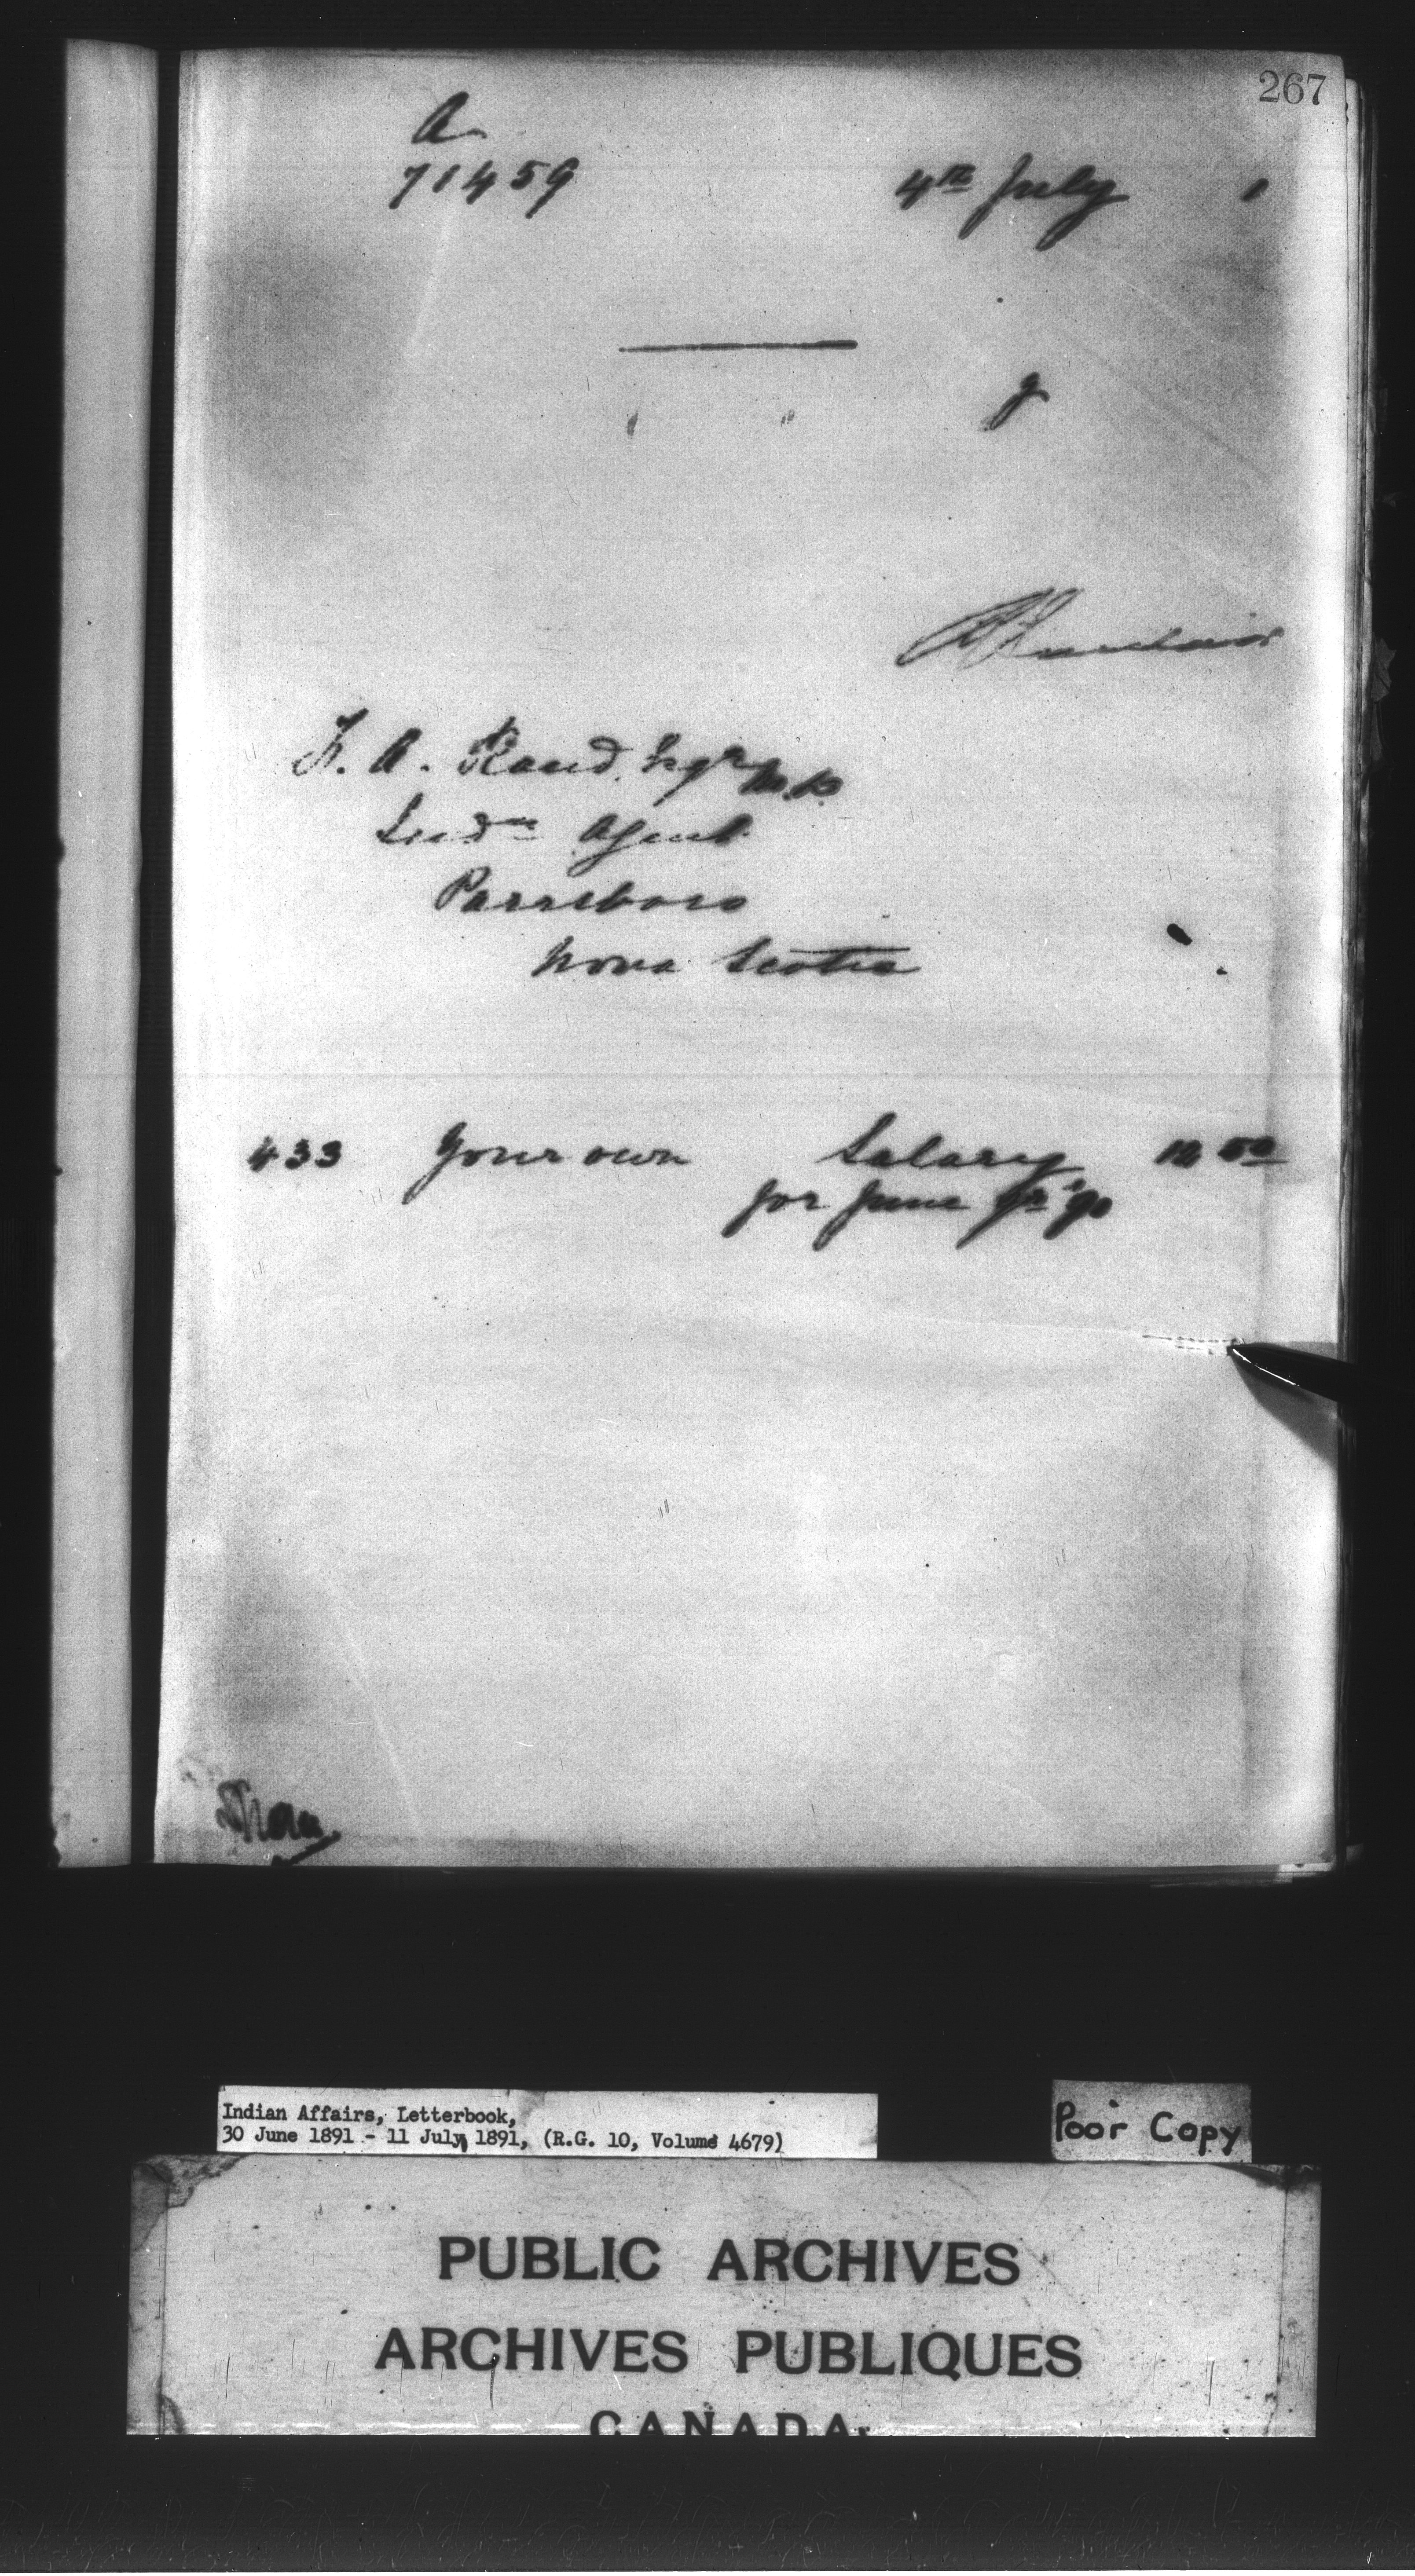 267
A
71459
4th July 1
y
F. A. Rand, Esqre M.D.
Indn Agent
Parrsboro
Nova Scotia
433 Your own Salary 12 50
for June qr '90
Indian Affairs, Letterbook,
30 June 1891 - 11 July, 1891, (R.G. 10, Volume 4679)
Poor Copy
PUBLIC ARCHIVES
ARCHIVES PUBLIQUES
CANADA